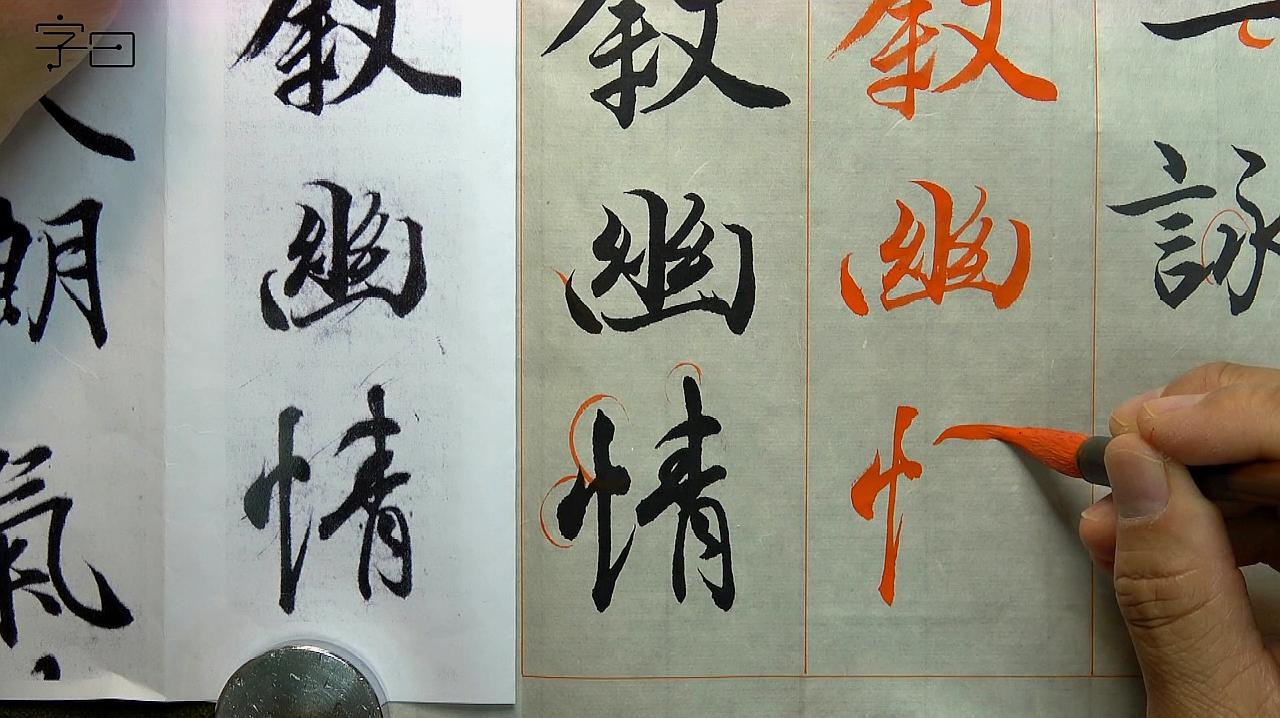 一詠
敘幽忄
敘幽情
敘幽情
朗氣
字曰